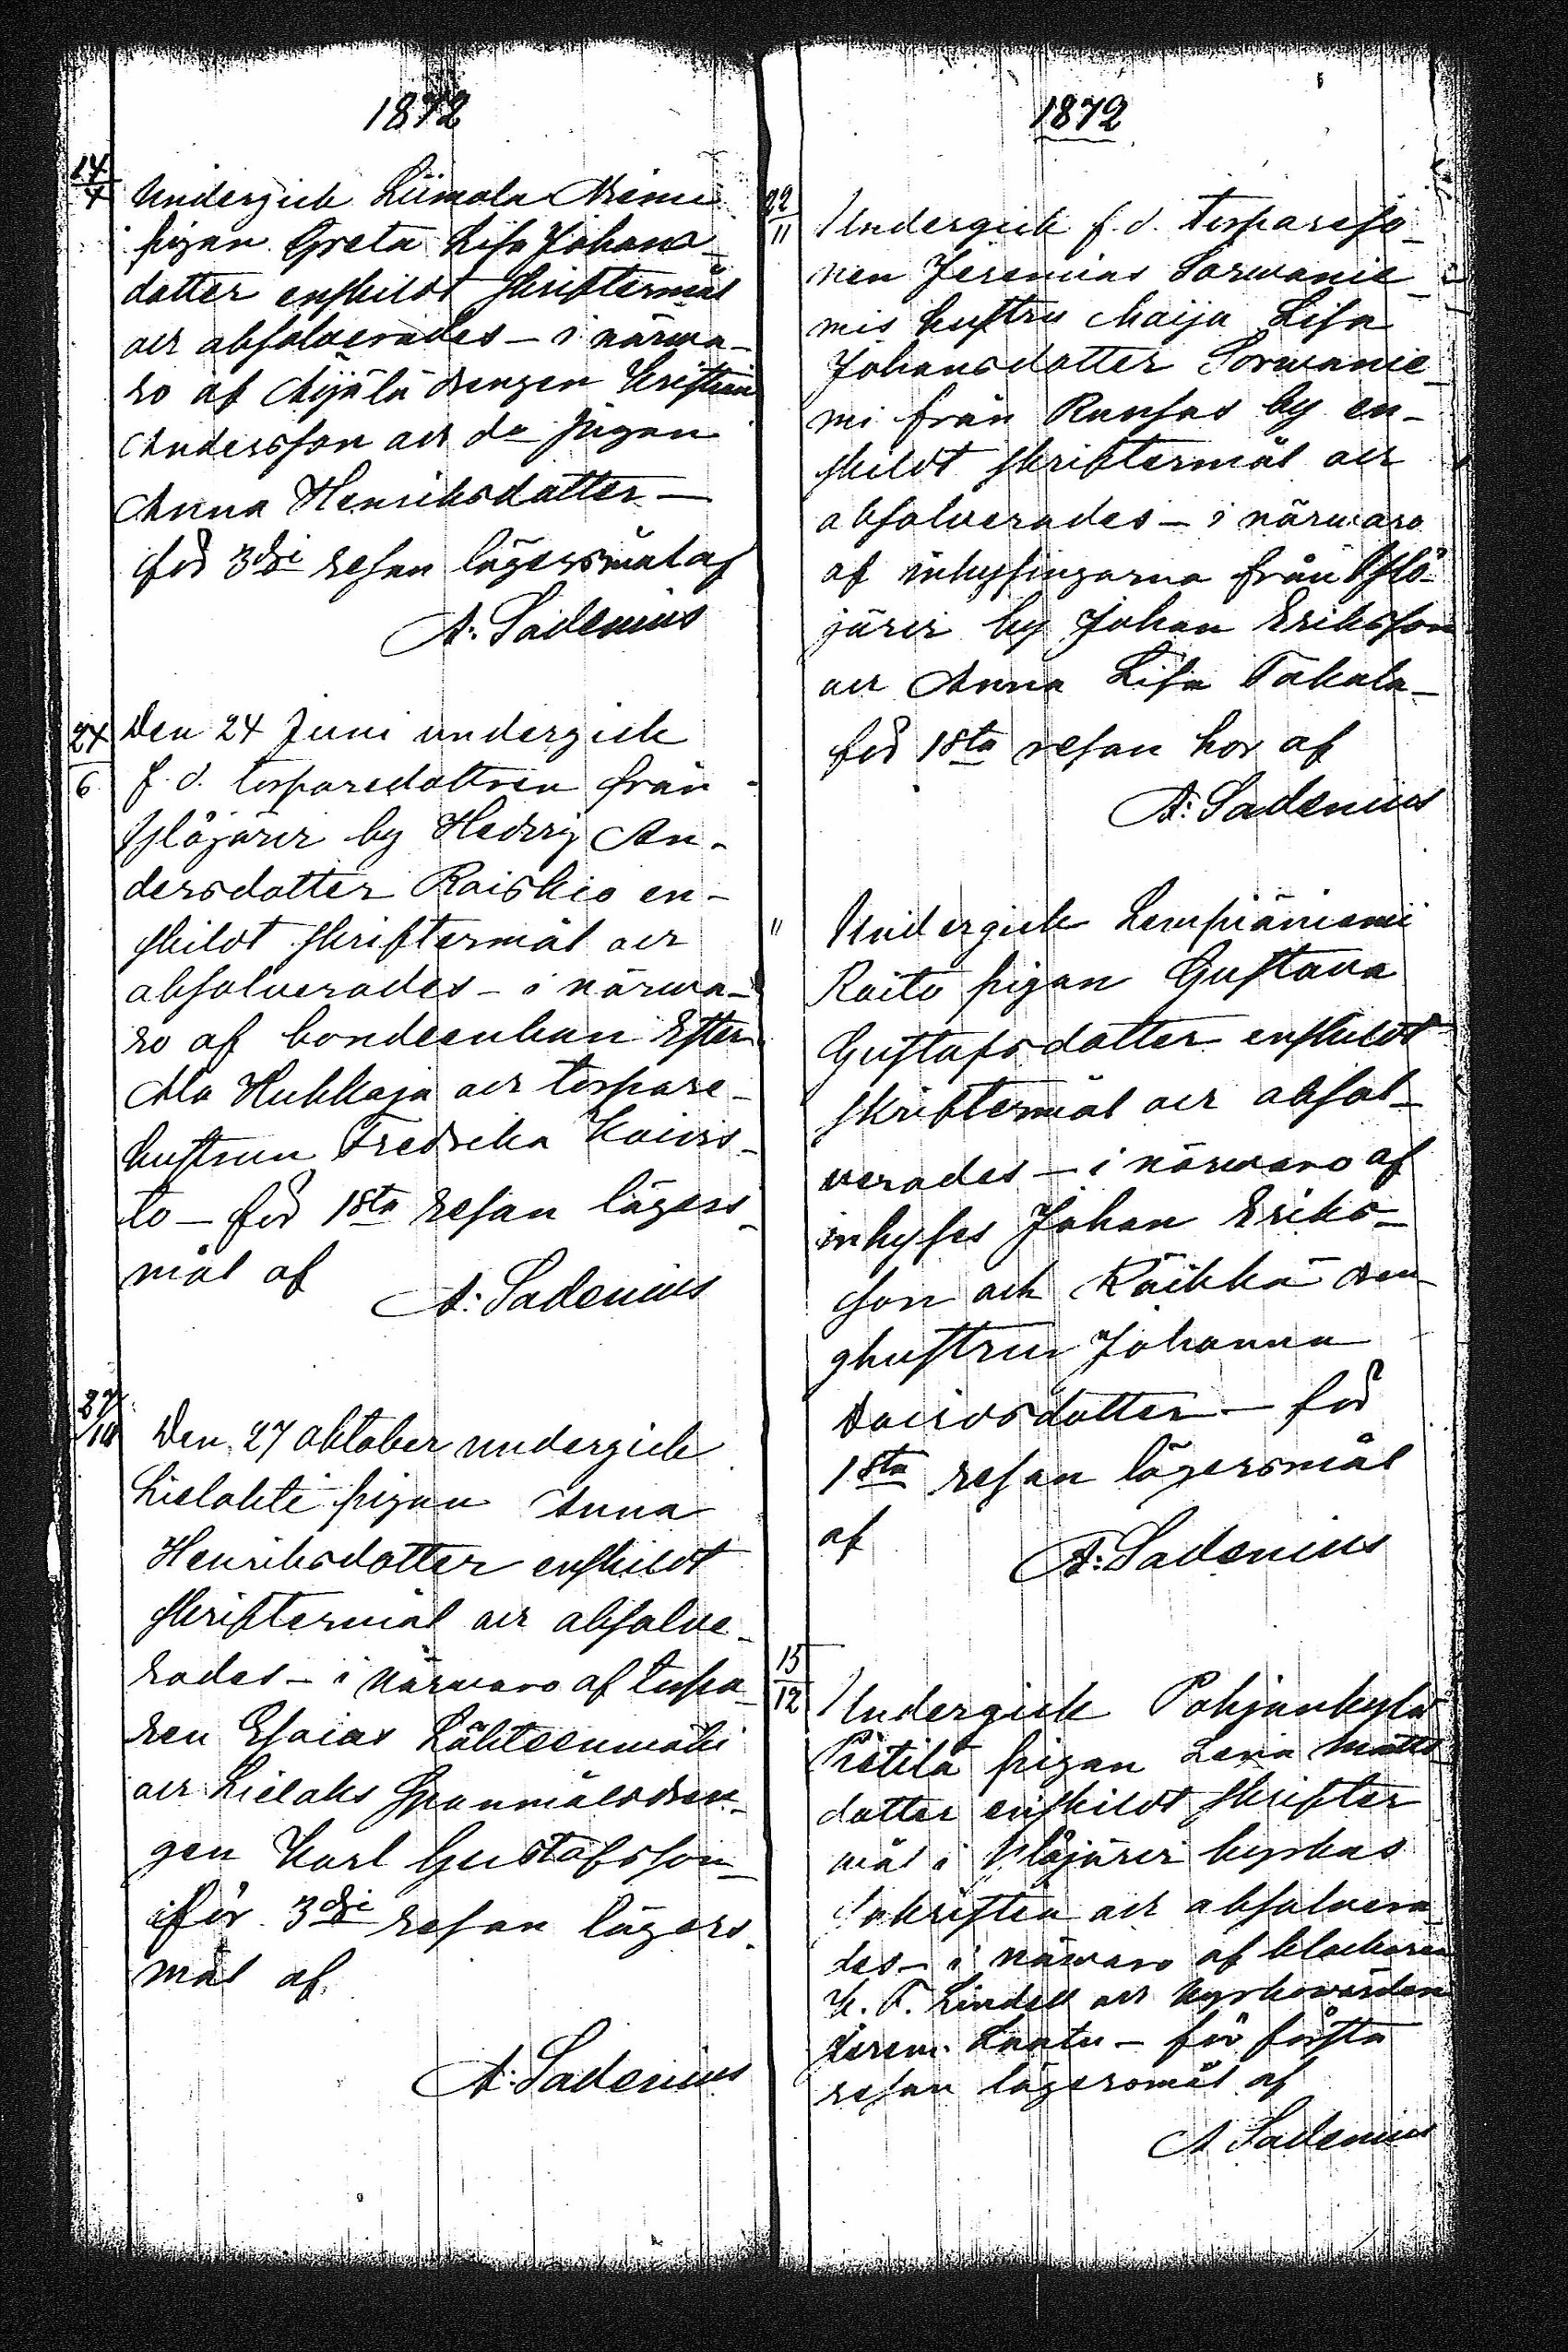 1872
14/4 Undergick Liimola Niemi
pigan Greta Lisa Johans-
dotter enskildt skriftermål
och absolverades – i närva-
ro af Mijälä drengen Kristian
Andersson och do pigan
Anna Henriksdotter –
för 3dje resan lägersmål af
A: Sadenius
24/6 Den 24 Juni undergick
f. d. torparedottren från
Ylöjärvi by Hedvig An-
dersdotter Raiskio en-
skildt skriftermål och
absolverades – i närva-
ro af bondeenkan Ester
Ala Hukkaja och torpare-
hustrun Fredrika Koivis-
to – för 1sta resan lägers-
mål af
A: Sadenius
27/10 Den 27 oktober undergick
Lielahti pigan Anna
Henriksdotter enskildt
skriftermål och absolve-
rades – i närvaro af torpa-
ren Esaias Lähteenmäki
och Lielaks spanmålsdren-
gen Karl Gustafsson –
för 3dje resan lägers-
mål af
A: Sadenius
1872
22/11 Undergick f. d. torpareso-
nen Jeremias Sorvanie-
mis hustru Maija Lisa
Johansdotter Sorvanie-
mi från Runsas by en-
skildt skriftermål och
absolverades – i närvaro
af inhysingarna från Ylö-
järvi by Johan Eriksson
och Anna Lisa Takala –
för 1sta resan hor af
A: Sadenius
" Undergick Lempiäniemi
Raito pigan Gustava
Gustafsdotter enskildt
skriftermål och absol-
verades – i närvaro af
inhyses Johan Eriks-
son och Räikkä dren-
ghustrun Johanna
Davidsdotter – för
1sta resan lägersmål
af
A: Sadenius
15/12 Undergick Pohjankylä
Pietilä pigan Lena Matts-
dotter enskildt skrifter
mål i Ylöjärvi kyrkas
sakristia och absolvera-
des – i närvaro af klockaren
K. F. Lindell och kyrkovärden
Jerem. Luntu – för första
resan lägersmål af
A Sadenius